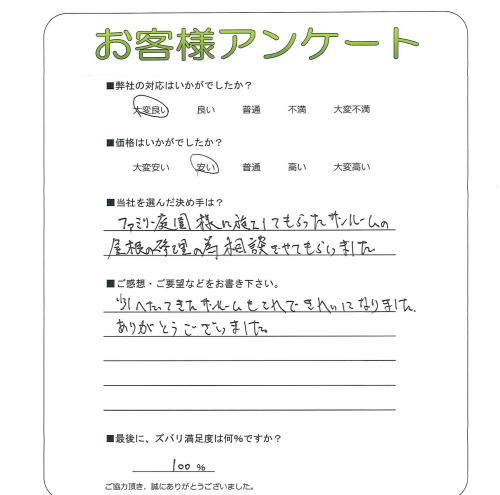 お客様アンケート
■弊社の対応はいかがでしたか？
大変良い 良い 普通 不満 大変不満
■価格はいかがでしたか？
大変安い 安い 普通 高い 大変高い
■当社を選んだ決め手は？
ファミリー庭園様に施工してもらったサンルームの
屋根の修理の為相談させてもらいました
■ご感想・ご要望などをお書き下さい。
少しへたってきたサンルームもこれできれいになりました、
ありがとうございました。
■最後に、ズバリ満足度は何％ですか？
100 ％
ご協力頂き、誠にありがとうございました。